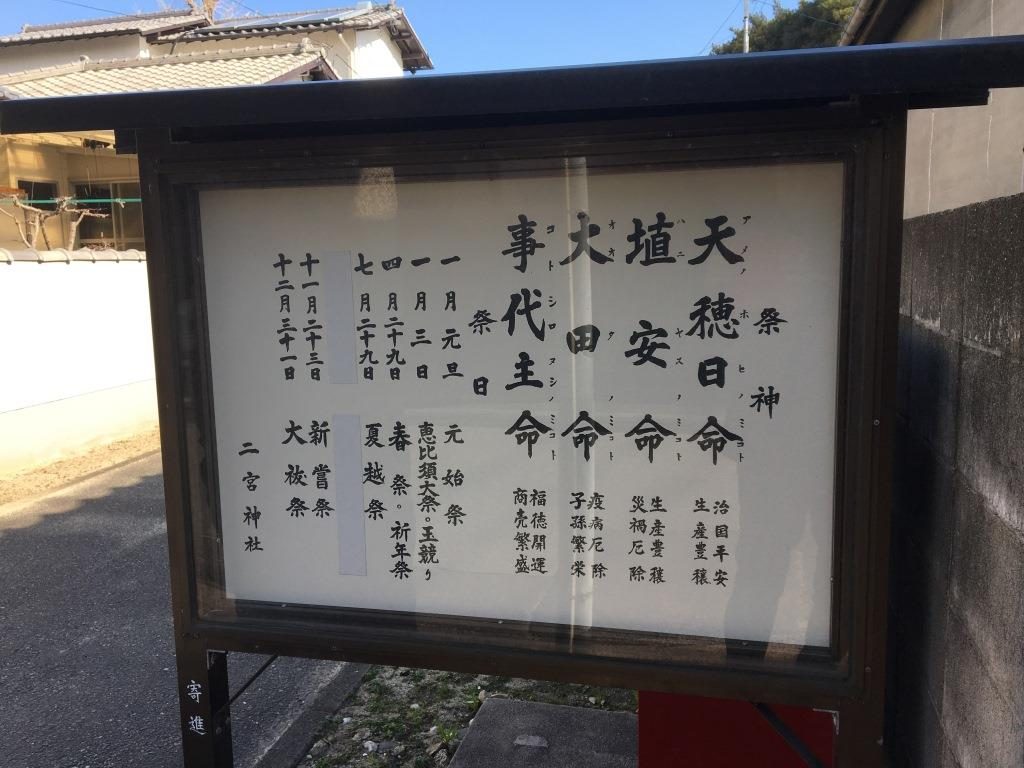 祭神
天穂日命
アメノホヒノミコト
治国平安
生産豊穣
埴安命
ハニヤスノミコト
生産豊穣
災禍厄除
大田命
オオタノミコト
疫病厄除
子孫繁栄
事代主命
コトシロヌシノミコト
福徳開運
商売繁盛
祭日
一月元旦 元始祭
一月三日 恵比須大祭。玉競り
四月二十九日 春祭。祈年祭
七月二十九日 夏越祭
十一月二十三日 新嘗祭
十二月三十一日 大祓祭
二宮神社
寄進